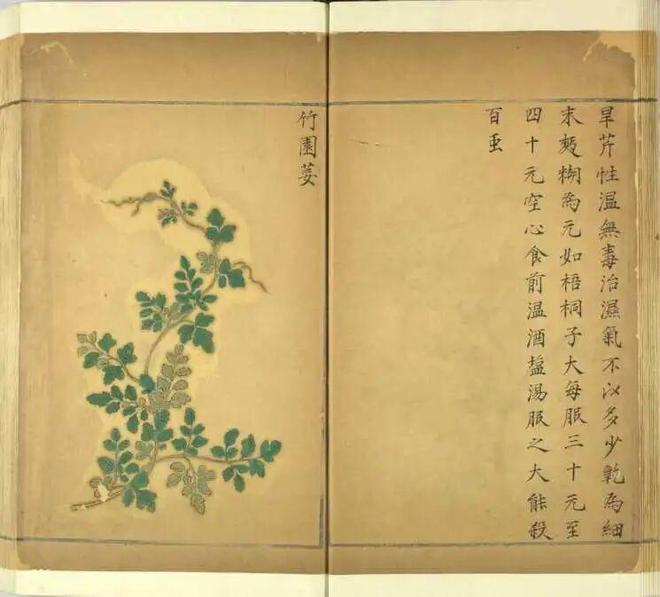 旱芹性温無毒治濕氣不以多少乾為細
末麪糊為元如梧桐子大每服三十元至
四十元空心食前温酒塩湯服之大能殺
百虫
竹園荽